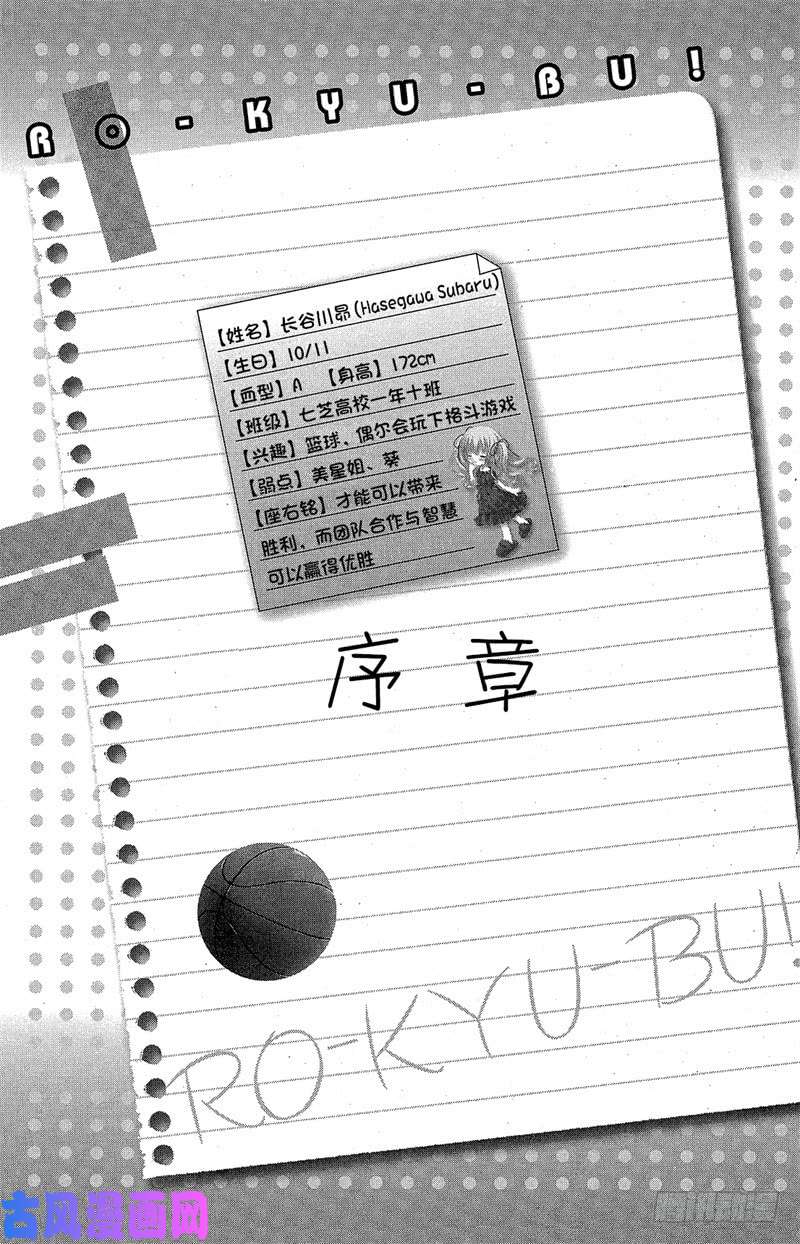 RO-KYU-BU!
【姓名】长谷川昴(Hasegawa Subaru)
【生日】10/11
【血型】A 【身高】172cm
【班级】七芝高校一年十班
【兴趣】篮球、偶尔会玩下格斗游戏
【弱点】美星姐、葵
【座右铭】才能可以带来
胜利，而团队合作与智慧
可以赢得优胜
序章
RO-KYU-BU!
古风漫画网